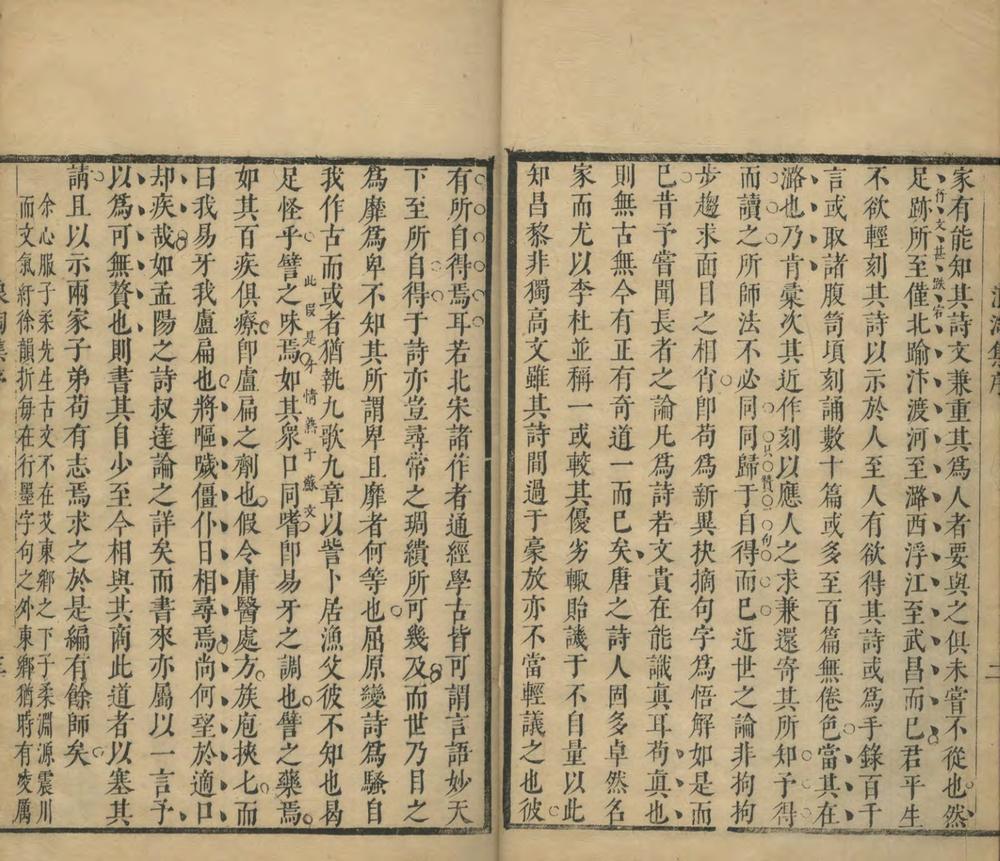 家有能知其詩文兼重其爲人者要與之俱未嘗不從也然
行文甚跌宕
足跡所至僅北踰汴渡河至潞西浮江至武昌而已君平生
不欲輕刻其詩以示於人至人有欲得其詩或爲手錄百千
言或取諸腹笥頃刻誦數十篇或多至百篇無倦色當其在
潞也乃肯彙次其近作刻以應人之求兼還寄其所知予得
而讀之所師法不必同同歸于自得而已近世之論非拘拘
步趨求面目之相肖卽苟爲新異抉摘句字爲悟解如是而
已昔予嘗聞長者之論凡爲詩若文貴在能識眞耳苟眞也
則無古無今有正有奇道一而已矣唐之詩人固多卓然名
家而尤以李杜並稱一或較其優劣輒貽譏于不自量以此
知昌黎非獨高文雖其詩間過于豪放亦不當輕議之也彼
二
有所自得焉耳若北宋諸作者通經學古皆可謂言語妙天
下至所自得于詩亦豈尋常之琱繢所可幾及而世乃目之
爲靡爲卑不知其所謂卑且靡者何等也屈原變詩爲騷自
我作古而或者猶執九歌九章以訾卜居漁父彼不知也曷
此段是亦情熟于蘇文
足怪乎譬之味焉如其衆口同嗜卽易牙之調也譬之藥焉
如其百疾俱療卽盧扁之劑也假令庸醫處方族庖挾七而
曰我易牙我盧扁也將嘔噦僵仆日相尋焉尚何望於適口
却疾哉如孟陽之詩叔達論之詳矣而書來亦屬以一言予
以爲可無贅也則書其自少至今相與其商此道者以塞其
請且以示兩家子弟苟有志焉求之於是編有餘師矣
余心服子柔先生古文不在艾東鄉之下子柔淵源震川
而文氣紆徐韻折每在行墨字句之外東鄉猶時有凌厲